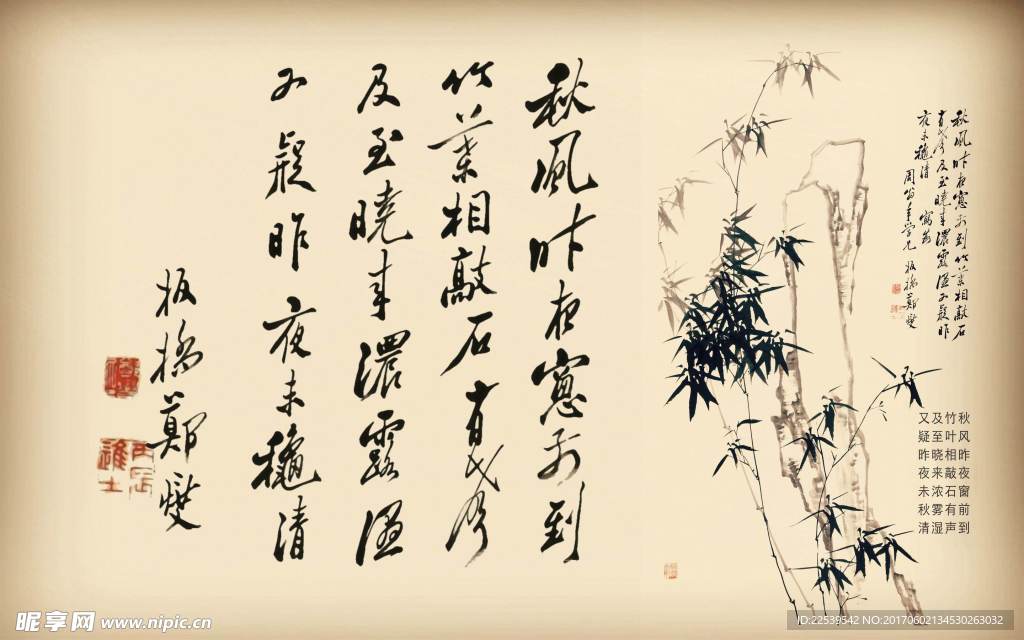 秋風昨夜窓前到
竹葉相敲石有声
及至曉来濃露湿
又疑昨夜未龝清
板橋鄭燮
丙辰進士
秋風昨夜窓前到竹葉相敲石
有声及至曉来濃露湿又疑昨
夜未龝清
板橋鄭燮
秋风昨夜窗前到
竹叶相敲石有声
及至晓来浓雾湿
又疑昨夜未秋清
昵享网 www.nipic.cn
ID:22539542 NO:20170602134530263032